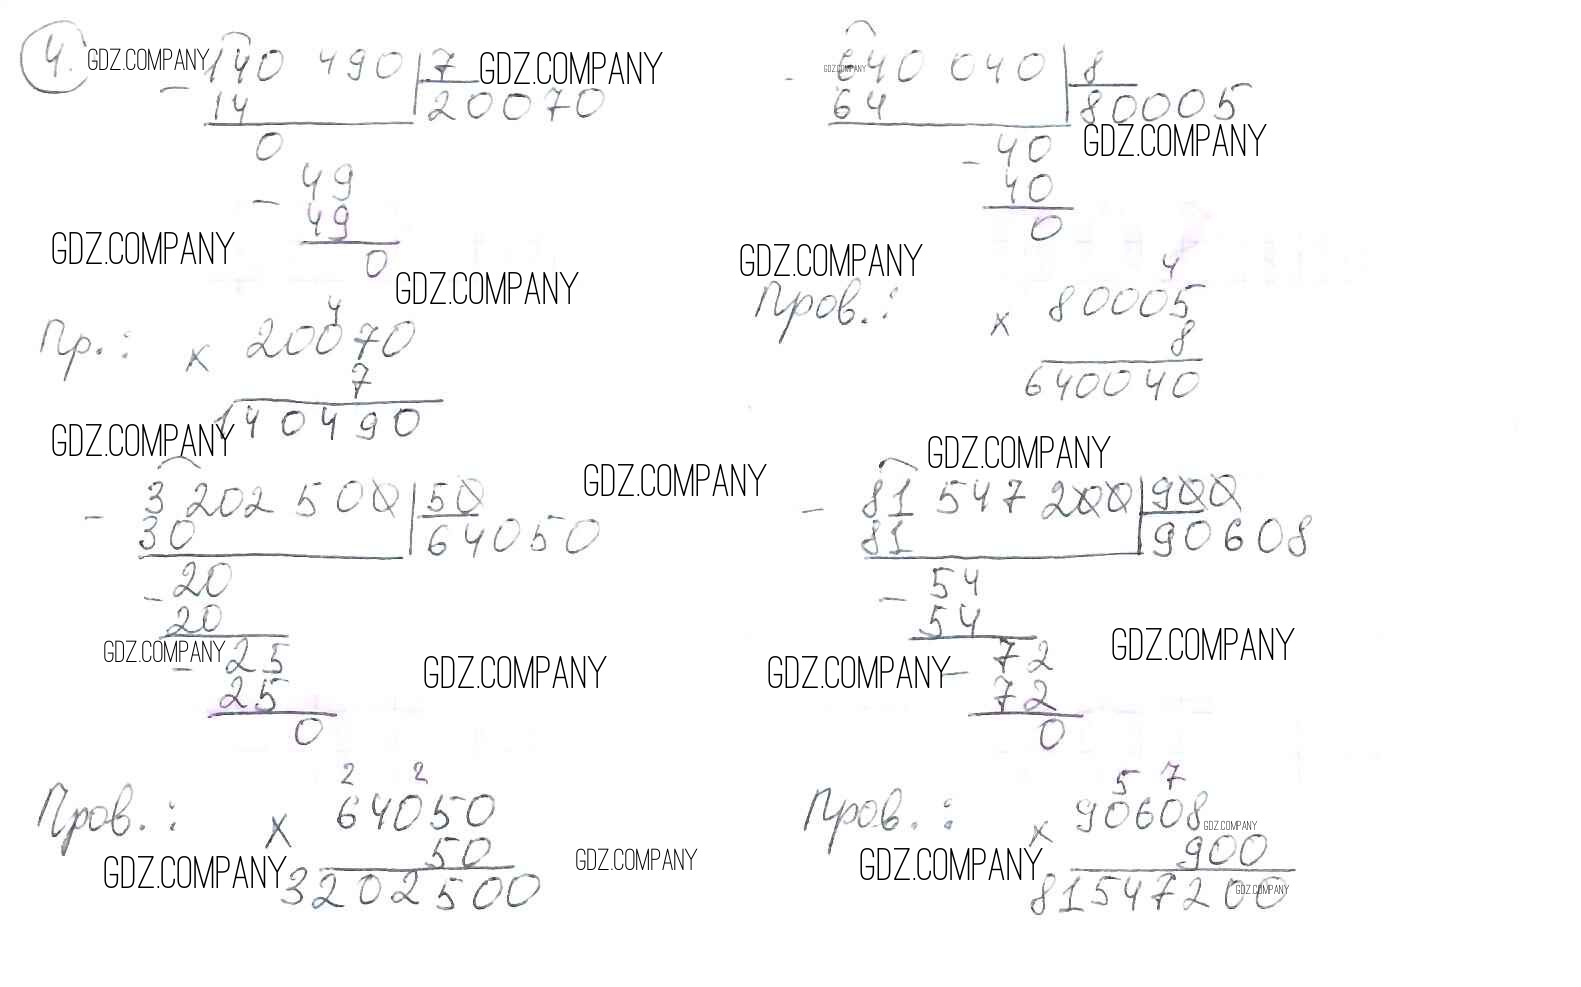 4. GDZ.COMPANY
140 490 7 GDZ.COMPANY
14 20070
0
49
49
0
GDZ.COMPANY
GDZ.COMPANY
4
Пр.: × 20070
7
140490
GDZ.COMPANY
GDZ.COMPANY
640 040 8
64 80005
GDZ.COMPANY
40
40
0
GDZ.COMPANY
4
Пров.: × 80005
8
640040
GDZ.COMPANY
3 202 500 50 GDZ.COMPANY
30 64050
20
20
GDZ.COMPANY
25
25
0
GDZ.COMPANY
2 2
Пров.: × 64050
50
GDZ.COMPANY
3202500
GDZ.COMPANY
81 547 200 900
81 90608
54
54
GDZ.COMPANY
72
72
0
GDZ.COMPANY
5 7
Пров.: × 90608
GDZ.COMPANY
900
GDZ.COMPANY
81547200
GDZ.COMPANY